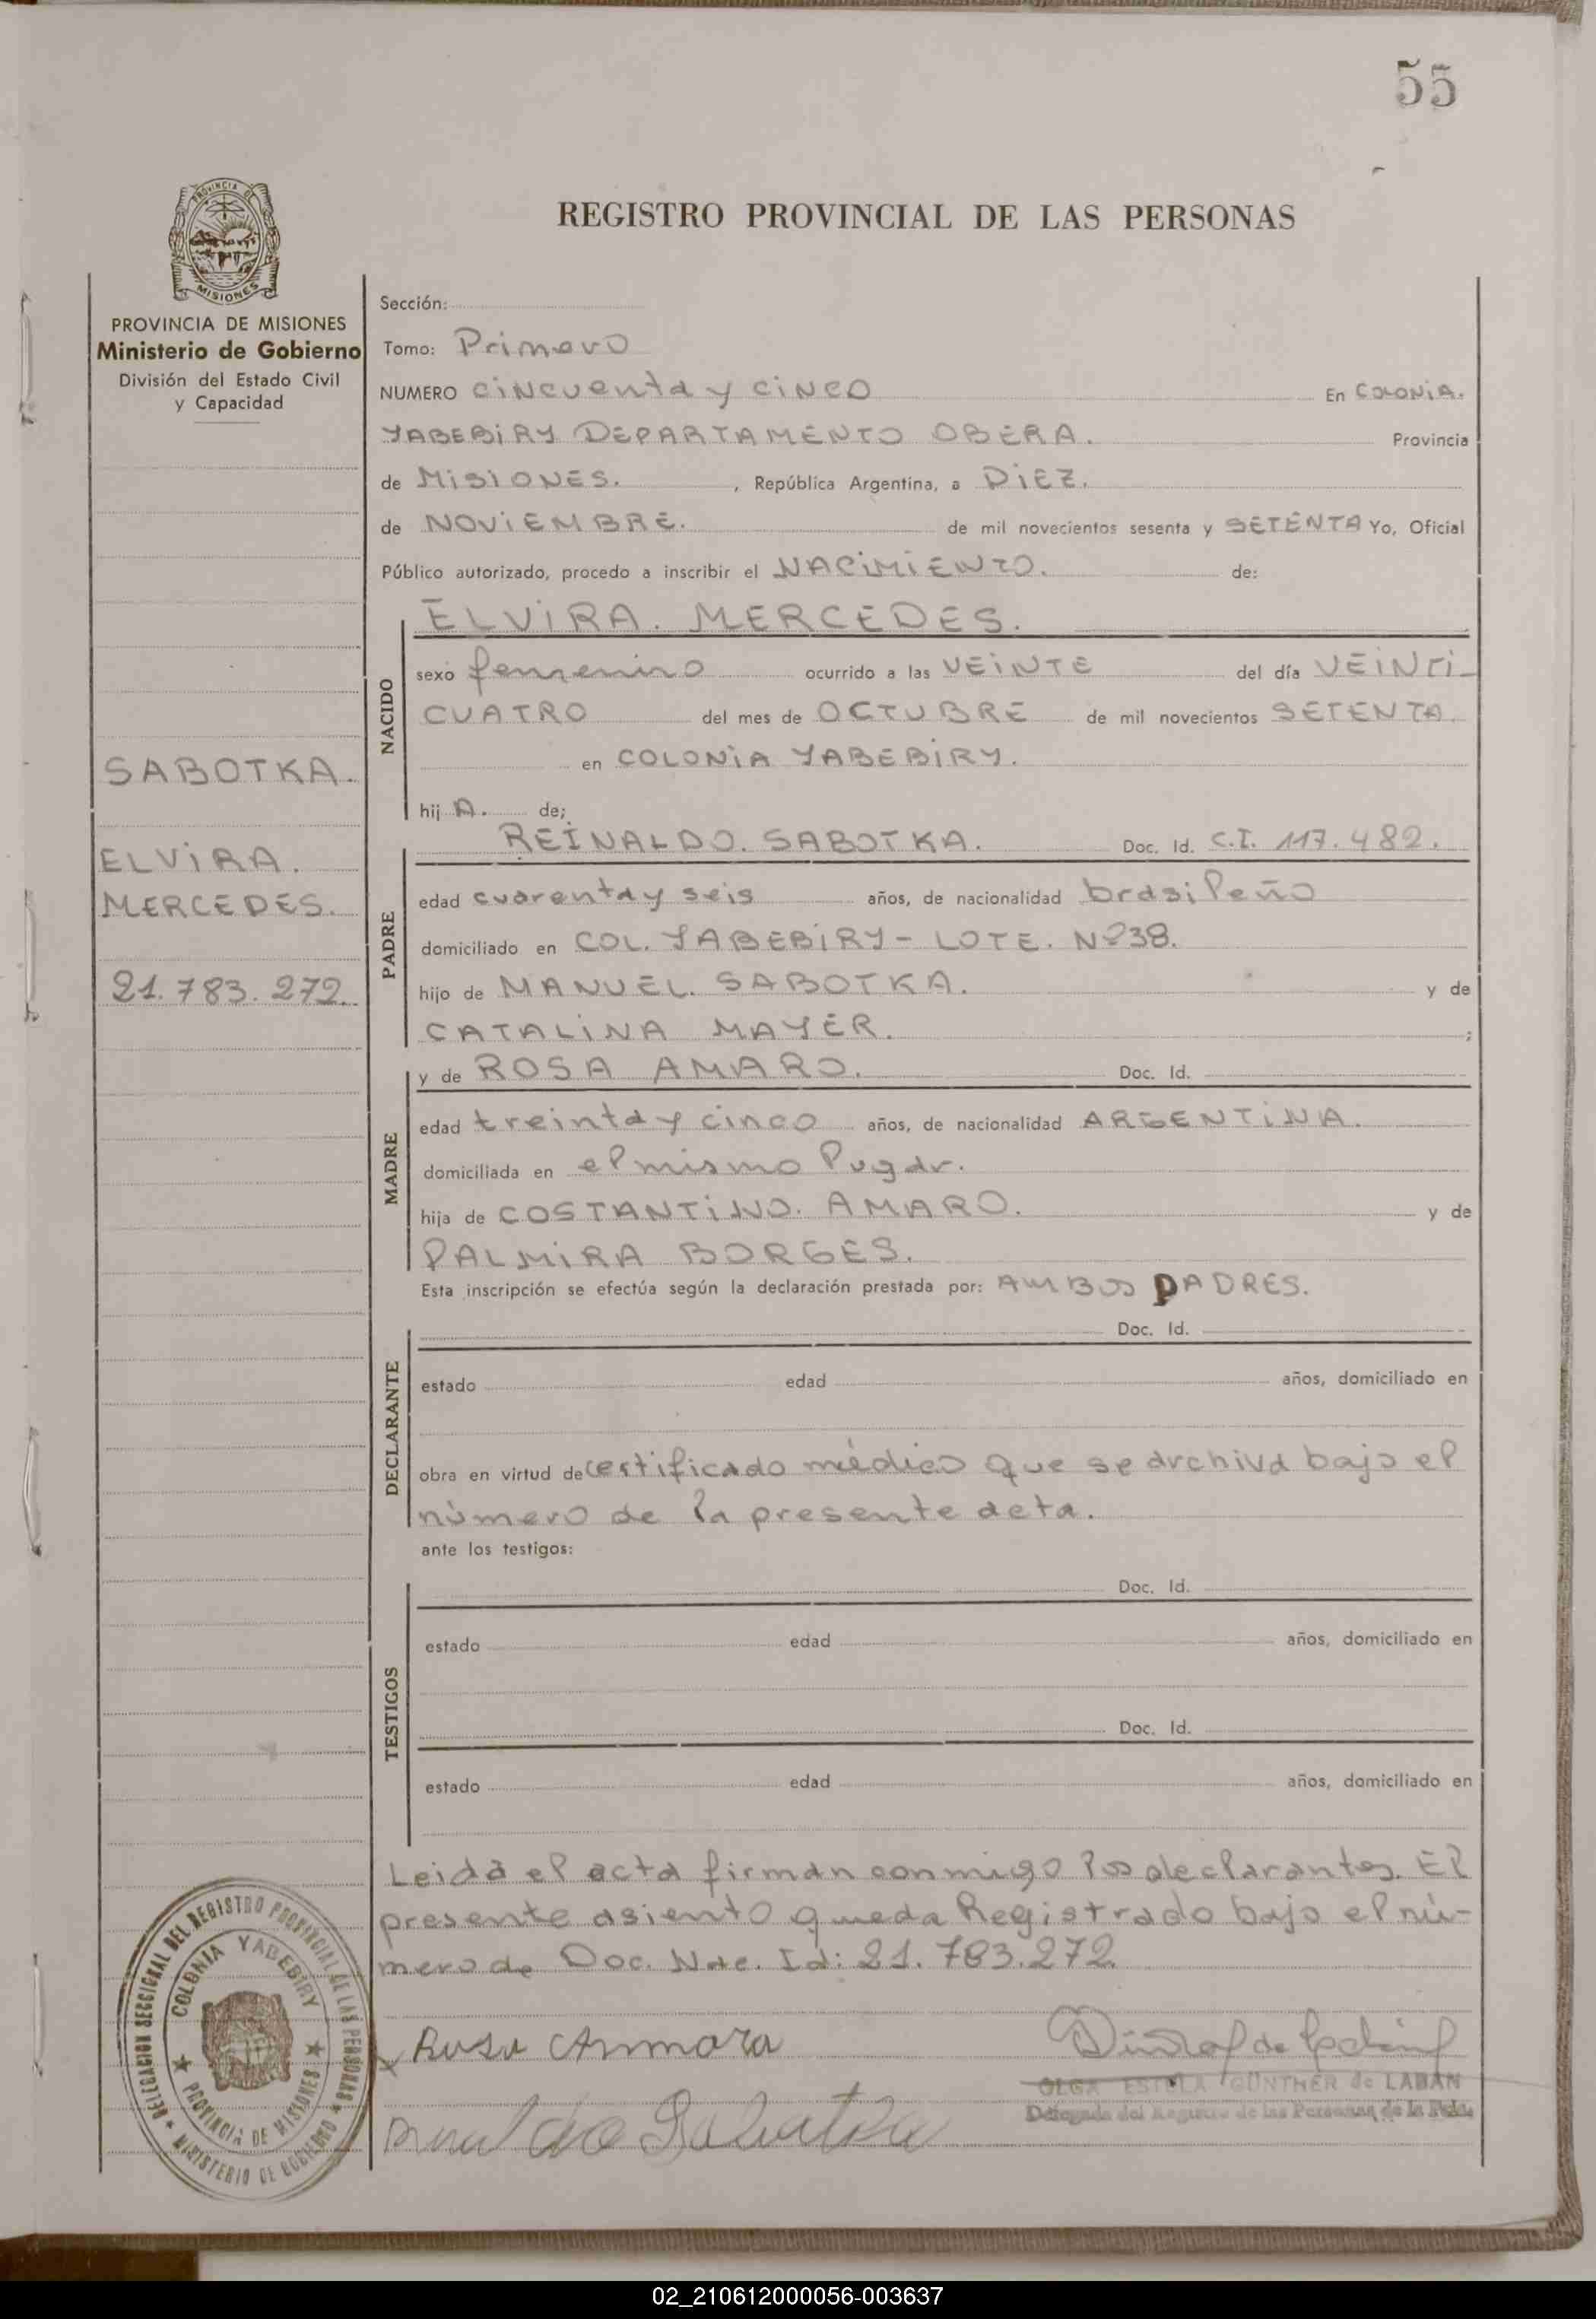 55
PROVINCIA DE
MISIONES
REGISTRO PROVINCIAL DE LAS PERSONAS
PROVINCIA DE MISIONES
Ministerio de Gobierno
División del Estado Civil
y Capacidad
SABOTKA.
ELVIRA.
MERCEDES.
21.783.272
Sección:
Tomo: Primero
NUMERO cincuenta y cinco En COLONIA.
YABEBIRY DEPARTAMENTO OBERA. Provincia
de MISIONES. , República Argentina, a DIEZ.
de NOVIEMBRE. de mil novecientos sesenta y SETENTA Yo, Oficial
Público autorizado, procedo a inscribir el NACIMIENTO. de:
NACIDO
ELVIRA. MERCEDES.
sexo femenino ocurrido a las VEINTE del día VEINTI-
CUATRO del mes de OCTUBRE de mil novecientos SETENTA
en COLONIA YABEBIRY.
hij A. de;
PADRE
REINALDO. SABOTKA. Doc. Id. C.I. 117.482.
edad cuarenta y seis años, de nacionalidad brasileño
domiciliado en COL. YABEBIRY - LOTE. Nº 38.
hijo de MANUEL. SABOTKA. y de
CATALINA MAYER. ;
MADRE
y de ROSA AMARO. Doc. Id.
edad treinta y cinco años, de nacionalidad ARGENTINA.
domiciliada en el mismo lugar.
hija de COSTANTINO. AMARO. y de
PALMIRA BORGES.
Esta inscripción se efectúa según la declaración prestada por: AMBOS PADRES.
DECLARANTE
Doc. Id.
estado edad años, domiciliado en
obra en virtud de certificado médico que se archiva bajo el
número de la presente acta.
ante los testigos:
TESTIGOS
Doc. Id.
estado edad años, domiciliado en
Doc. Id.
estado edad años, domiciliado en
Leida el acta firman conmigo los declarantes. El
presente asiento queda Registrado bajo el nú-
mero de Doc. Nac. Id: 21.783.272
DELEGACION SECCIONAL DEL REGISTRO PROVINCIAL DE LAS PERSONAS
MINISTERIO DE GOBIERNO
COLONIA YABEBIRY
PROVINCIA DE MISIONES
Rosa Ammara
OLGA ESTELA GÜNTHER de LABAN
Delegada del Registro de las Personas de la Pcia.
02_210612000056-003637